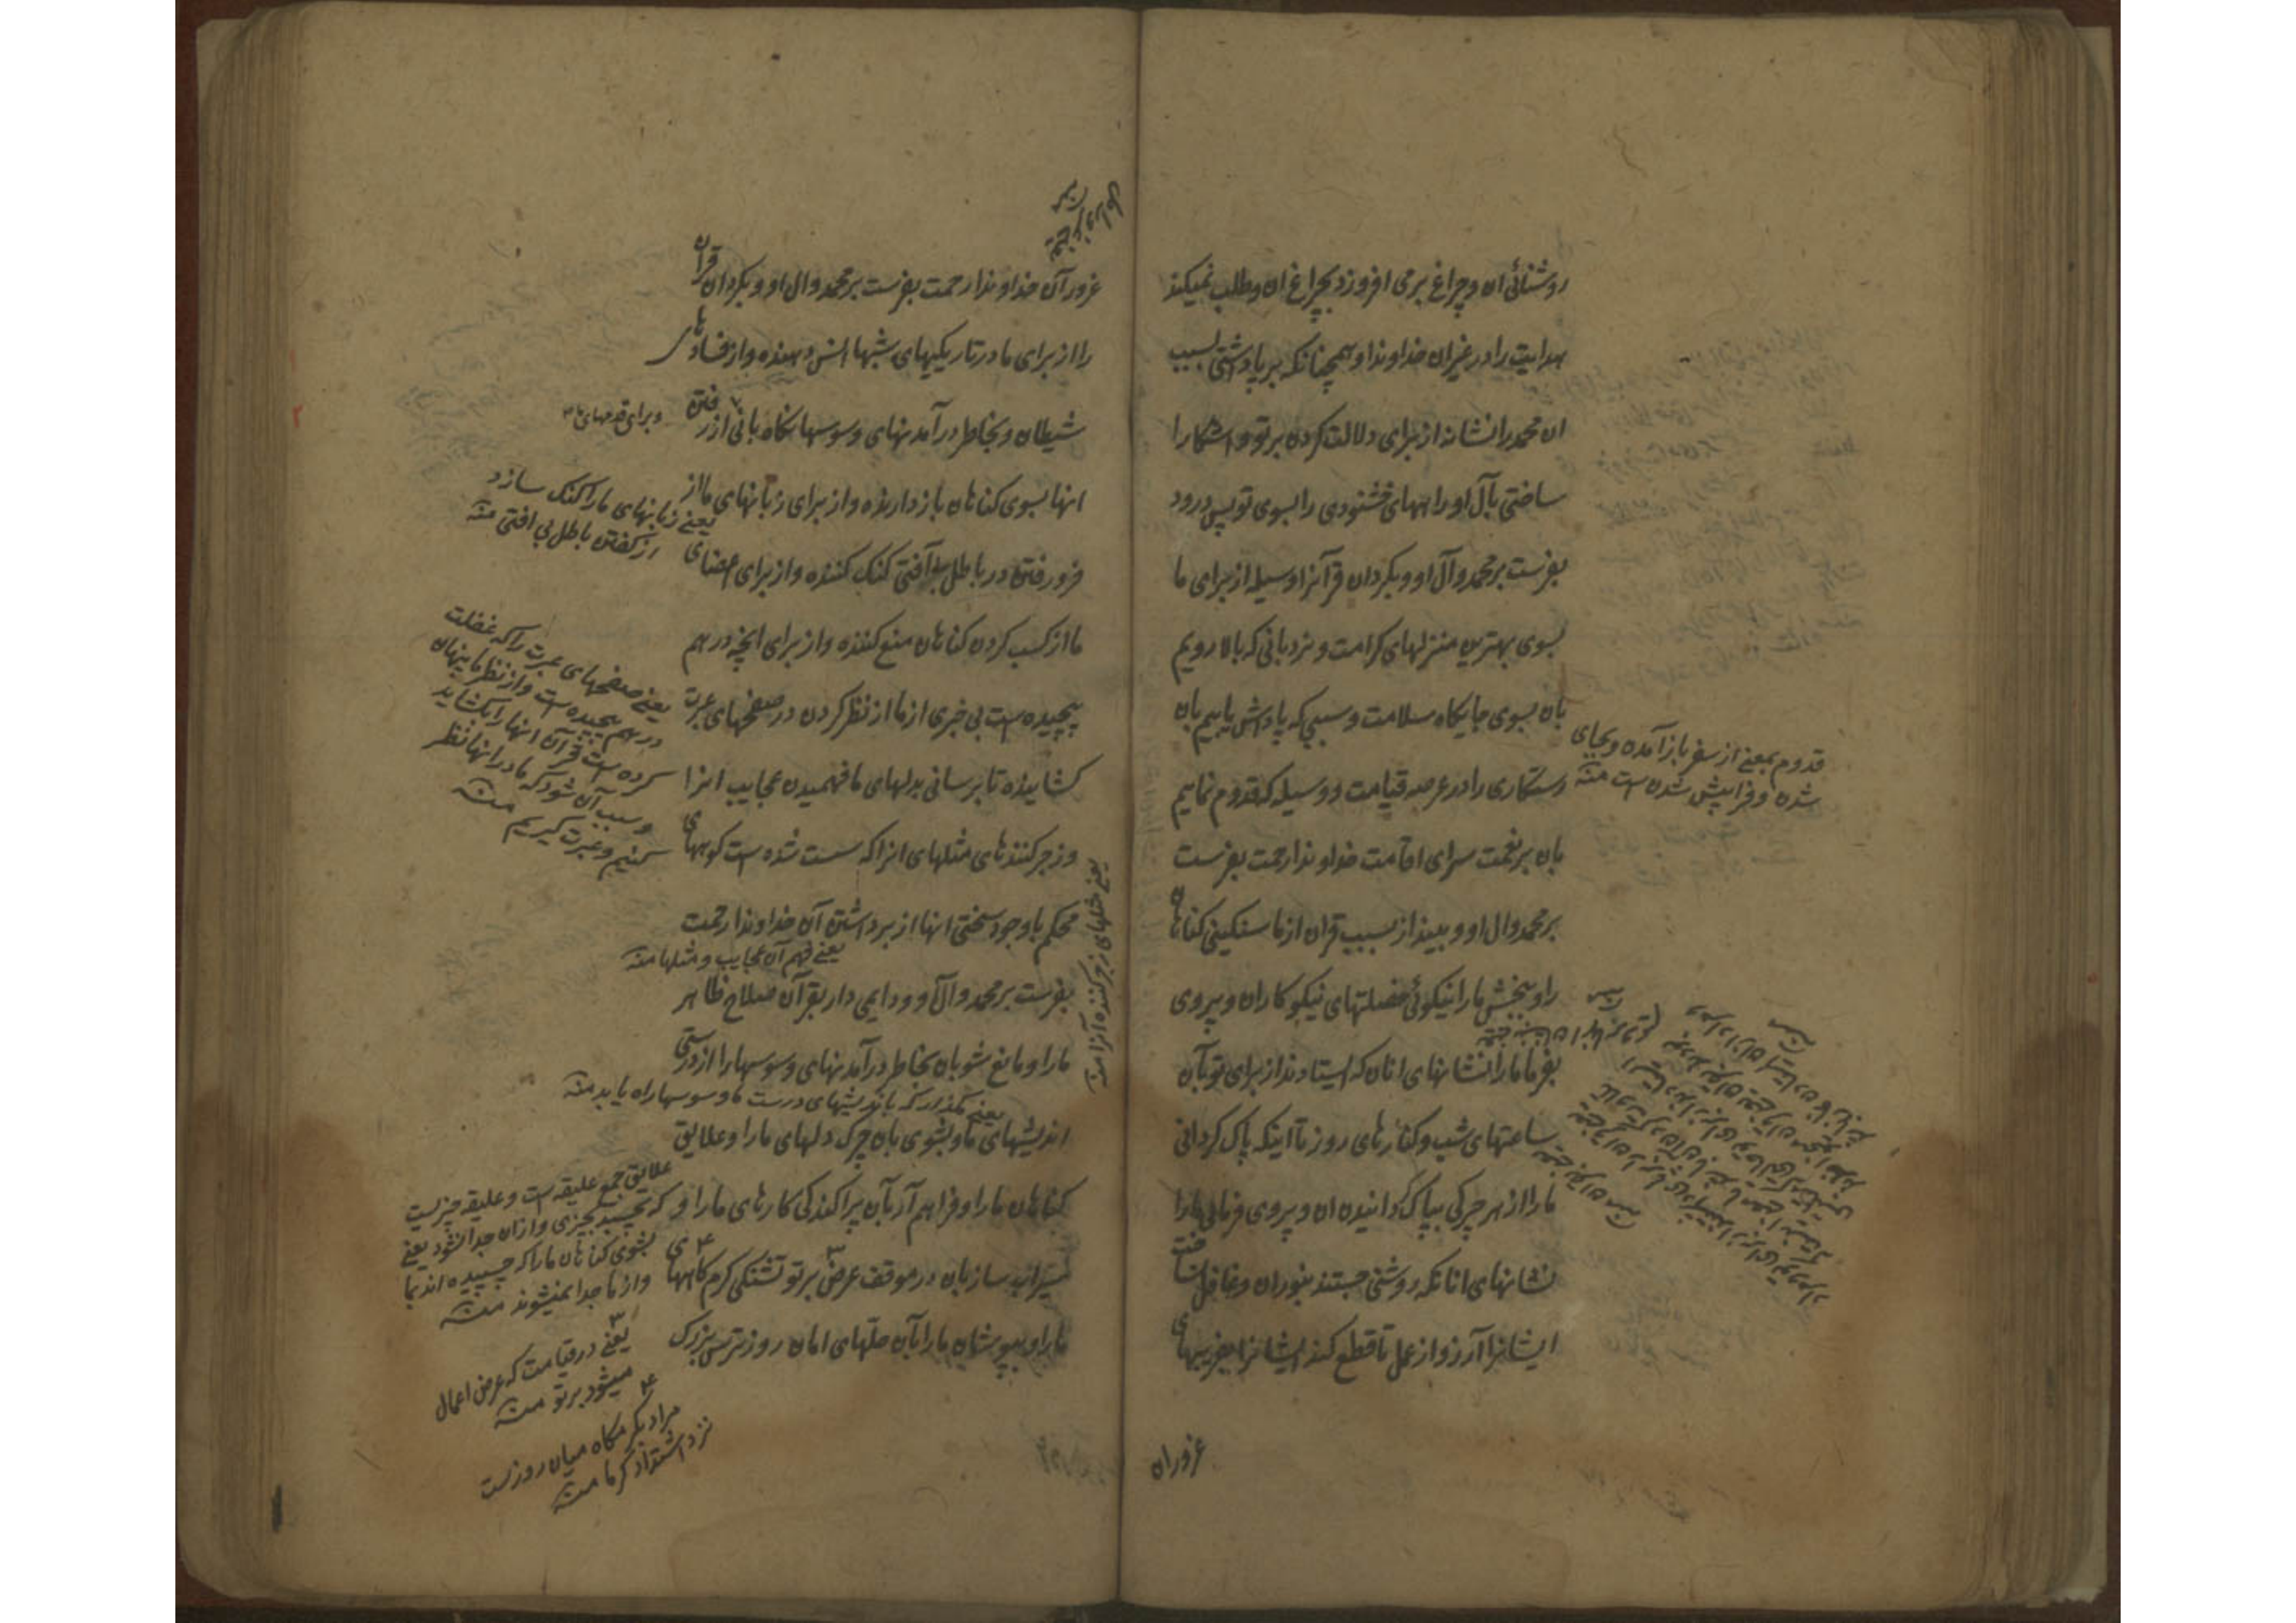 روشنائی ان و چراغ برمی افروزد بچراغ ان و طلب نمیکند
هدایت را در غیر ان خداوندا و همچنانکه برپا داشتی بسبب
ان محمد را نشانه از برای دلالت کردن بر تو و اشکارا
ساختی بآل او راههای خشنودی را بسوی تو پس درود
بفرست بر محمد و آل او و بگردان قرآنرا وسیله از برای ما
بسوی بهترین منزلهای کرامت و نردبانی که بالا رویم
بان بسوی جایگاه سلامت و سببی که پاداش یابیم بان
رستگاری را در عرصه قیامت و وسیله که قدوم نماییم
بان بر نعمت سرای اقامت خداوندا رحمت بفرست
بر محمد و ال او و بینداز بسبب قران از ما سنگینی گناهان
را و ببخش ما را نیکوئی خصلتهای نیکوکاران و پیروی
بفرما ما را نشانهای انان که ایستادند از برای تو بآن
ساعتهای شب و کنارهای روز تا اینکه پاک گردانی
ما را از هر چرکی بپاک گردانیدن ان و پیروی فرمائی ما را
نشانهای انانکه روشنی جستند بنور ان و غافل نساخت
ایشانرا آرزو از عمل تا قطع کند ایشانرا بفریبهای
غرور ان
قدوم بمعنی از سفر باز آمده و بجای
شدن و فرا پیش شدن است منه
غرور آن خداوندا رحمت بفرست بر محمد و ال او و بگردان قرآن
را از برای ما در تاریکیهای شبها انس دهنده و از فسادهای
شیطان و بخاطر درآمدنهای وسوسها نگاه بانی از رفتن
انها بسوی گناهان باز دارنده و از برای زبانهای ما از
فرو رفتن در باطل بی آفتی کنک کننده و از برای اعضای
ما از کسب کردن گناهان منع کننده و از برای انچه در هم
پیچیده است بی خبری از ما از نظر کردن در صفحهای عبرت
گشاینده تا برسانی بدلهای ما فهمیدن عجایب انرا
و زجر کنندهای مثلهای انرا که سست شده است کوههای
محکم با وجود سختی انها از برداشتن آن خداوندا رحمت
بفرست بر محمد و آل او و دایمی دار بقرآن صلاح ظاهر
ما را و مانع شو بان بخاطر درآمدنهای وسوسها را از درستی
اندیشهای ما و بشوی بان چرک دلهای ما را و علایق
گناهان ما را و فراهم آر بآن پراکندگی کارهای ما را و
سیراب ساز بان در موقف عرض بر تو تشنگی گرم گاههای
ما را و بپوشان ما را بآن حلّهای امان روز ترس بزرگ
و برای قدمهای ما
یعنی زبانهای ما را کنک سازد
از گفتن باطل بی افتی منه
یعنی صفحهای عبرت را که غفلت
در هم پیچیده است و از نظر ما پنهان
کرده است قرآن انها را بگشاید
و سبب آن شود که ما در انها نظر
کنیم و عبرت گیریم منه
یعنی مثلهای زجر کننده آنرا منه
یعنی فهم آن عجایب و مثلها منه
یعنی مگذار که باندیشهای درست ما وسوسها راه یابد منه
علایق جمع علیقه است و علیقه چیزیست
که بچسبد بچیزی و از ان جدا نشود یعنی
بشوی گناهان ما را که چسبیده اند بما
و از ما جدا نمیشوند منه
یعنی در قیامت که عرض اعمال
میشود بر تو منه
مراد بگرمگاه میان روز است
نزد اشتداد گرما منه